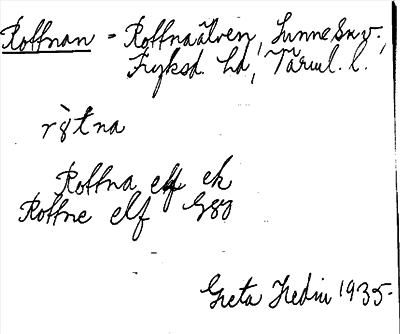 Rottnan - Rottnaälven, Sunne sn.,
Fryksd. hd, Värml. l.
ròt́na
Rottna elf ek
Rottne elf Gsg
Greta Hedin 1935.